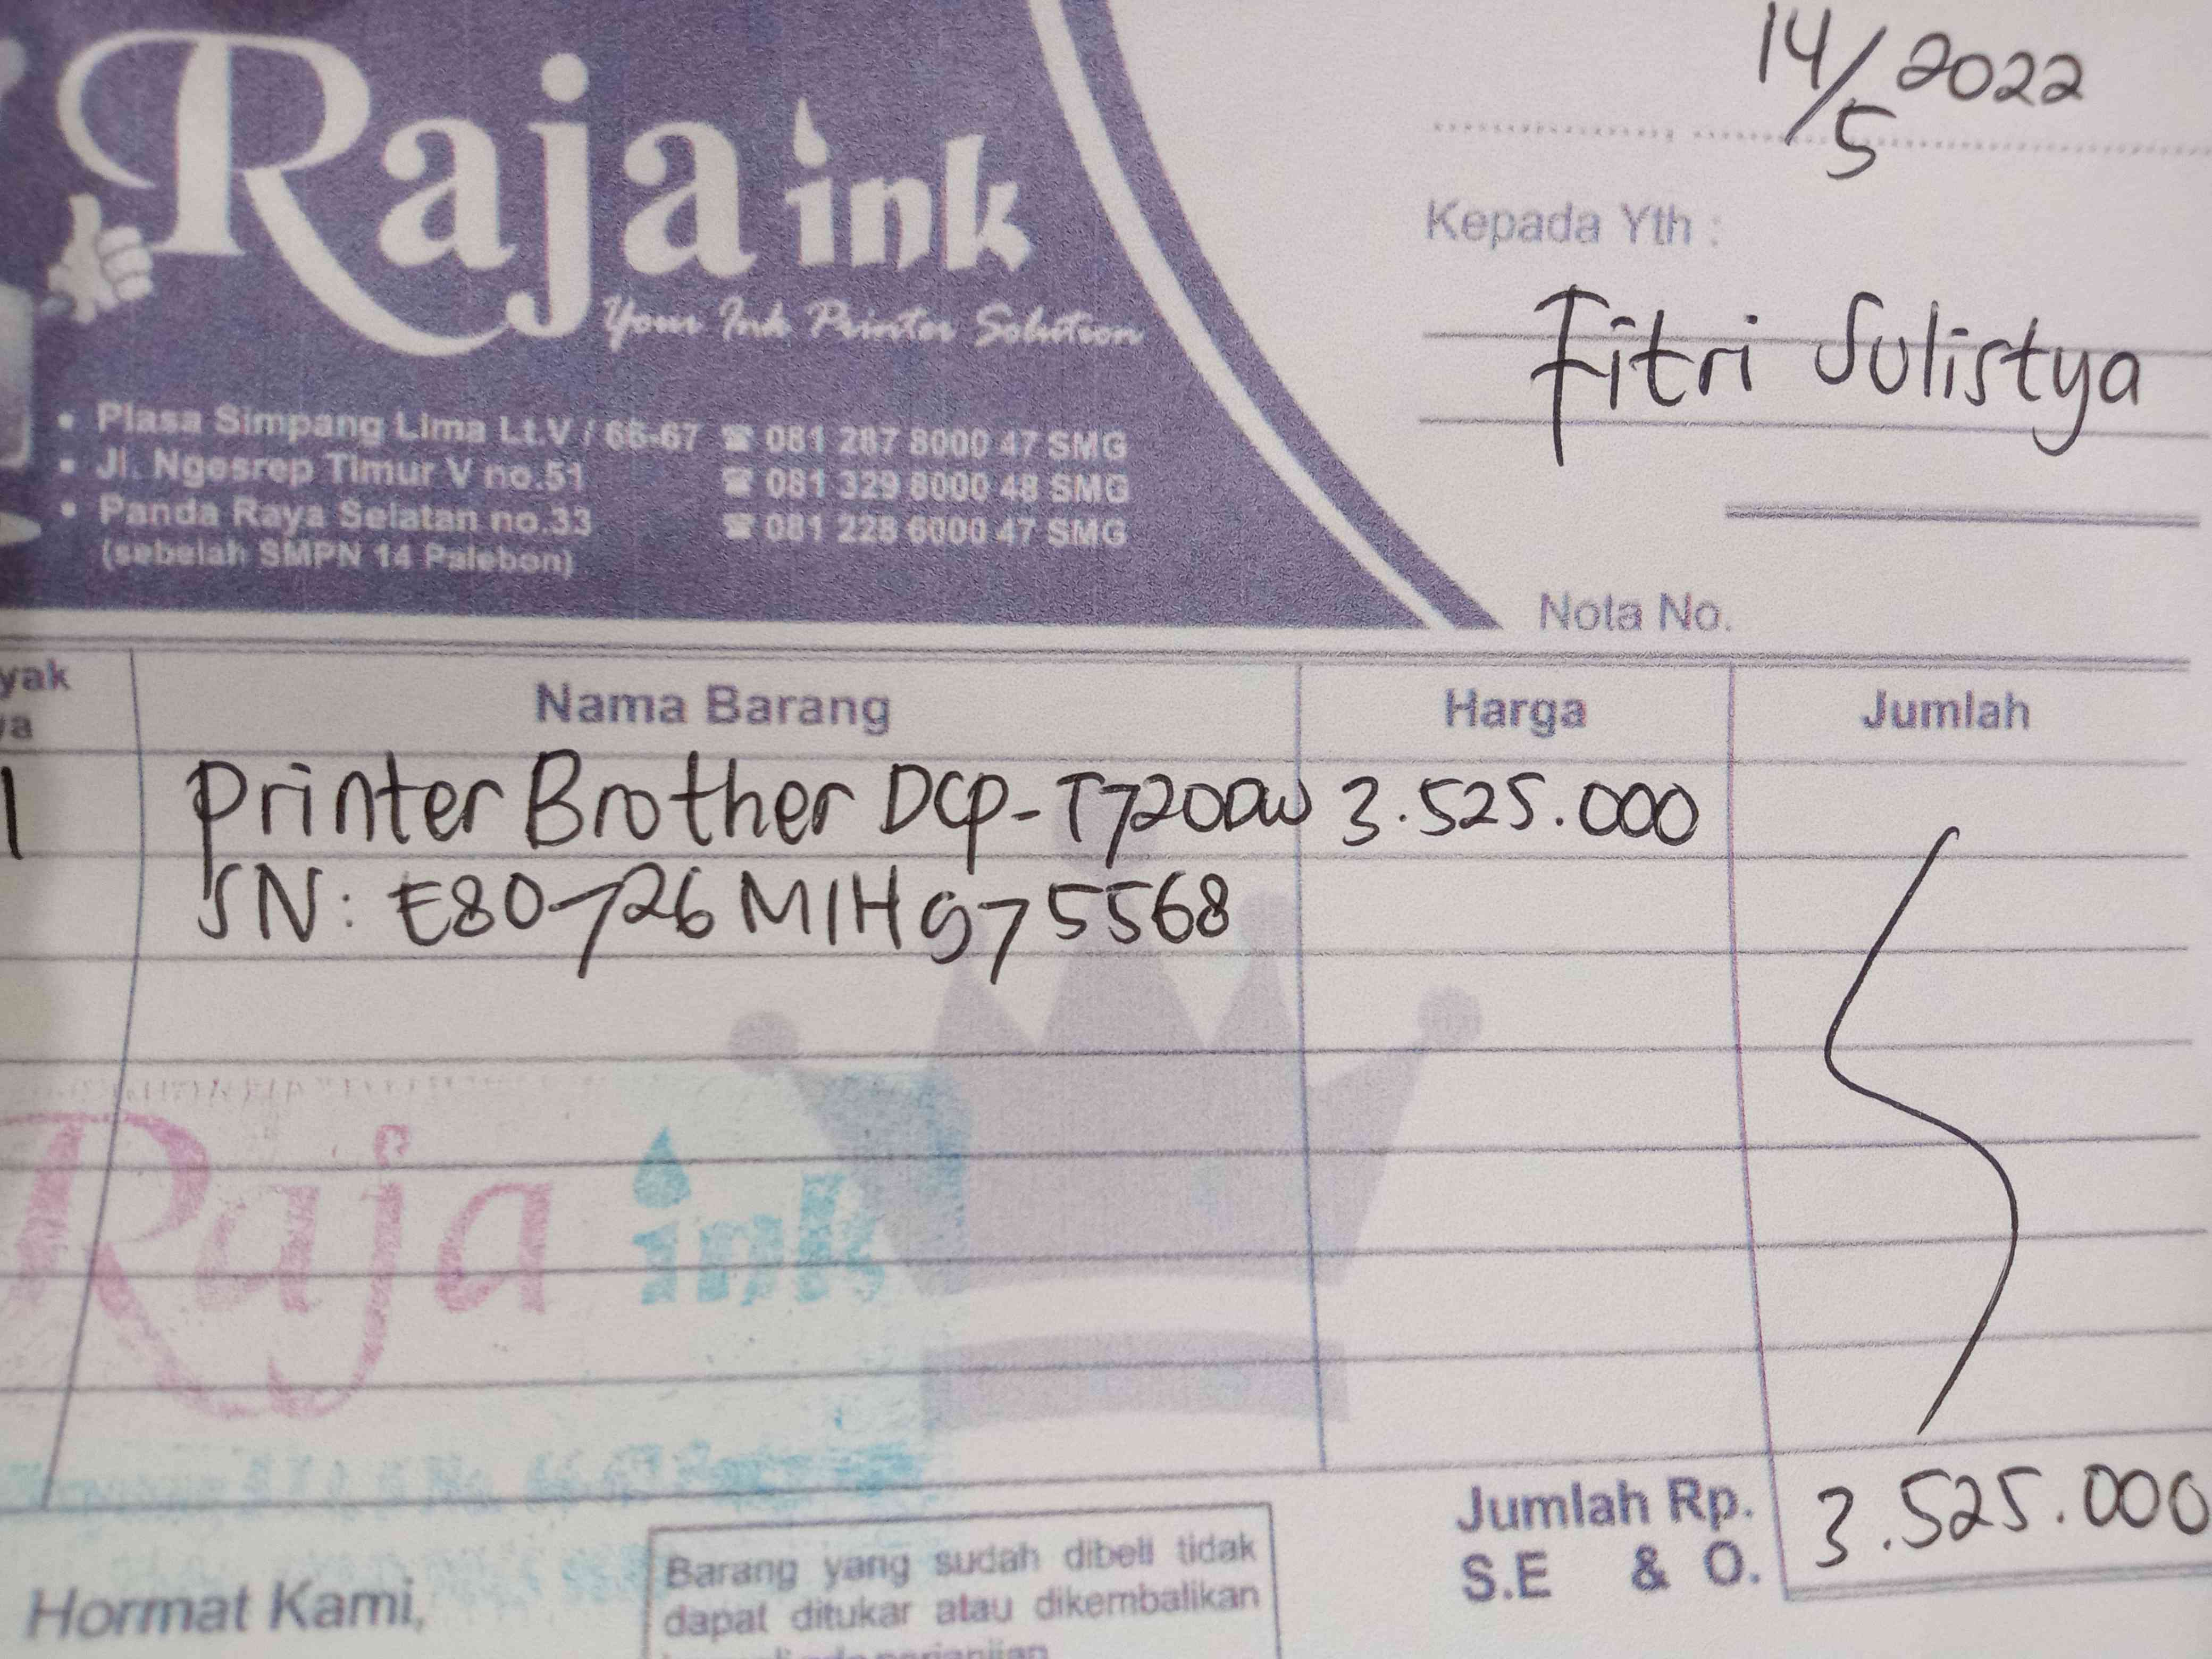 14/5 2022
Raja ink
Your Ink Printer Solution
Kepada Yth :
Fitri Sulistya
• Plasa Simpang Lima Lt.V / 66-67 ☎ 081 287 8000 47 SMG
• Jl. Ngesrep Timur V no.51 ☎ 081 329 8000 48 SMG
• Panda Raya Selatan no.33 ☎ 081 228 6000 47 SMG
(sebelah SMPN 14 Palebon)
Nota No.
yak
ya
Nama Barang Harga Jumlah
1 Printer Brother DCP-T720DW 3.525.000
SN: E80726M1H975568
Raja ink
Jumlah Rp. 3.525.000
S.E & O.
Hormat Kami,
Barang yang sudah dibeli tidak
dapat ditukar atau dikembalikan